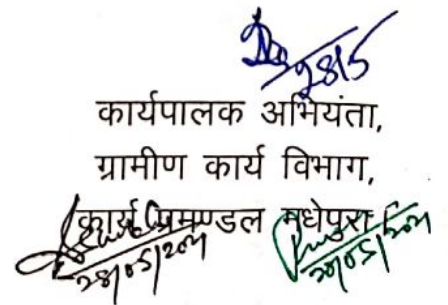 28/5
कार्यपालक अभियंता,
ग्रामीण कार्य विभाग,
कार्य प्रमण्डल मधेपुरा।
28/05/2021
28/05/2021